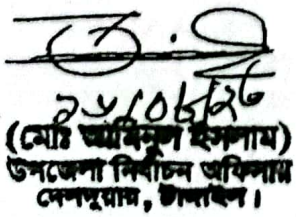 (মোঃ আমিনুল ইসলাম)
উপজেলা নির্বাচন অফিসার
দেলদুয়ার, টাঙ্গাইল।